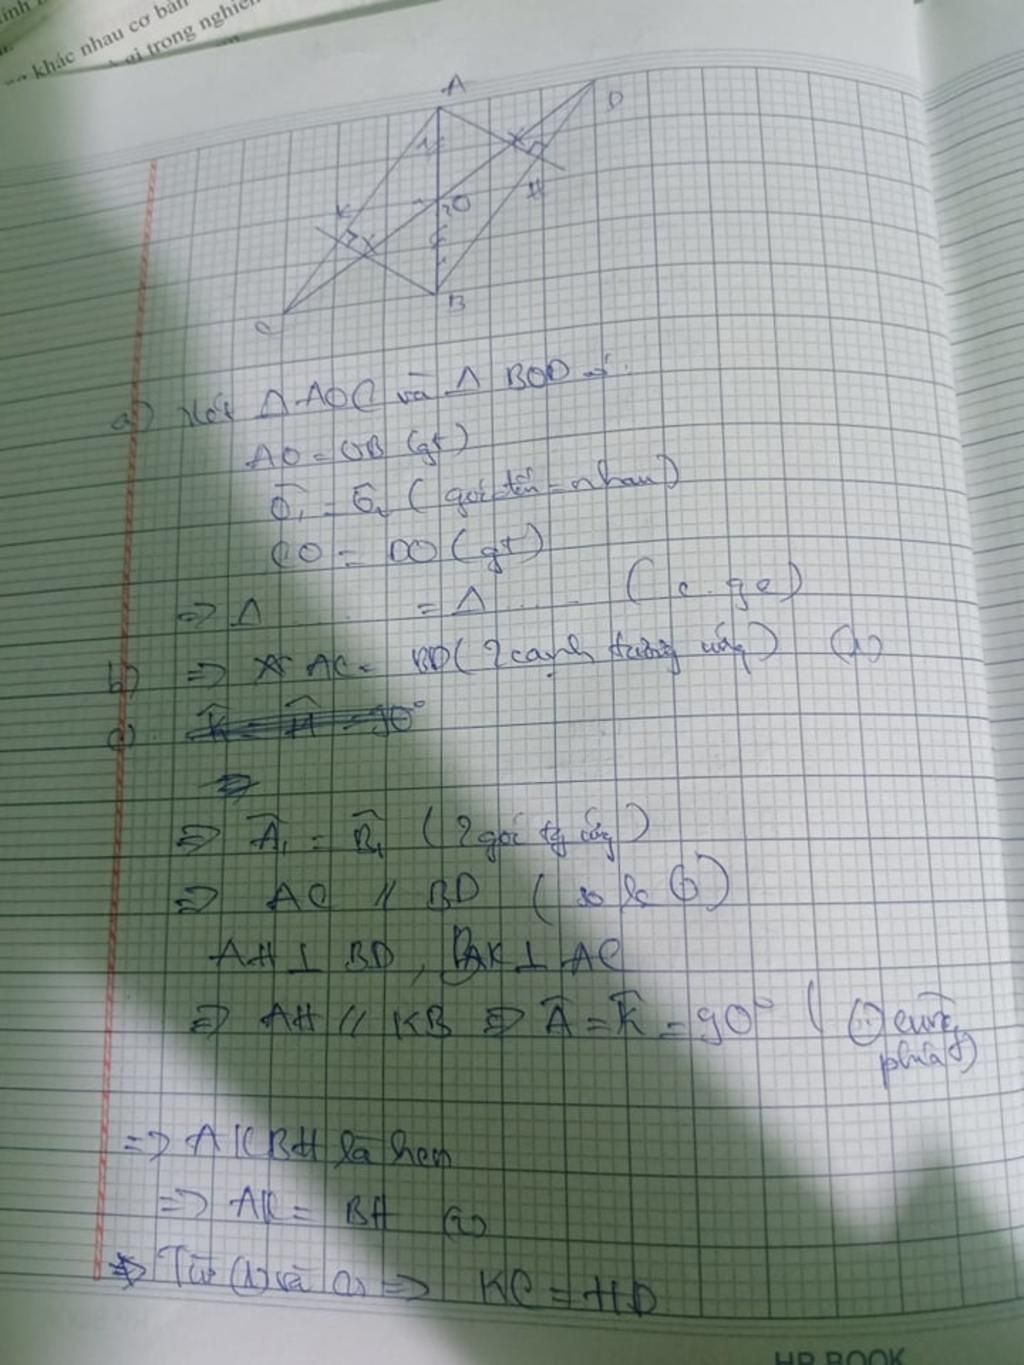 khác nhau cơ bản
trong nghiên
A
D
K
O
H
B
C
a) Xét Δ AOC và Δ BOD có:
AO = OB (gt)
Ô₁ = Ô₂ ( góc đđ = nhau)
CO = DO (gt)
=> Δ ..... = Δ ..... (c.g.c)
b) => AC = BD ( 2 cạnh tương ứng ) (1)
c)
=> Â₁ = B̂₁ ( 2 góc tg ứng )
=> AC // BD ( so le )
AH ⊥ BD , BK ⊥ AC
=> AH // KB => Â = K̂ = 90° ( cùng
phía )
=> AKBH là hcn
=> AK = BH (2)
=> Từ (1) và (2) => KC = HD
HR BOOK